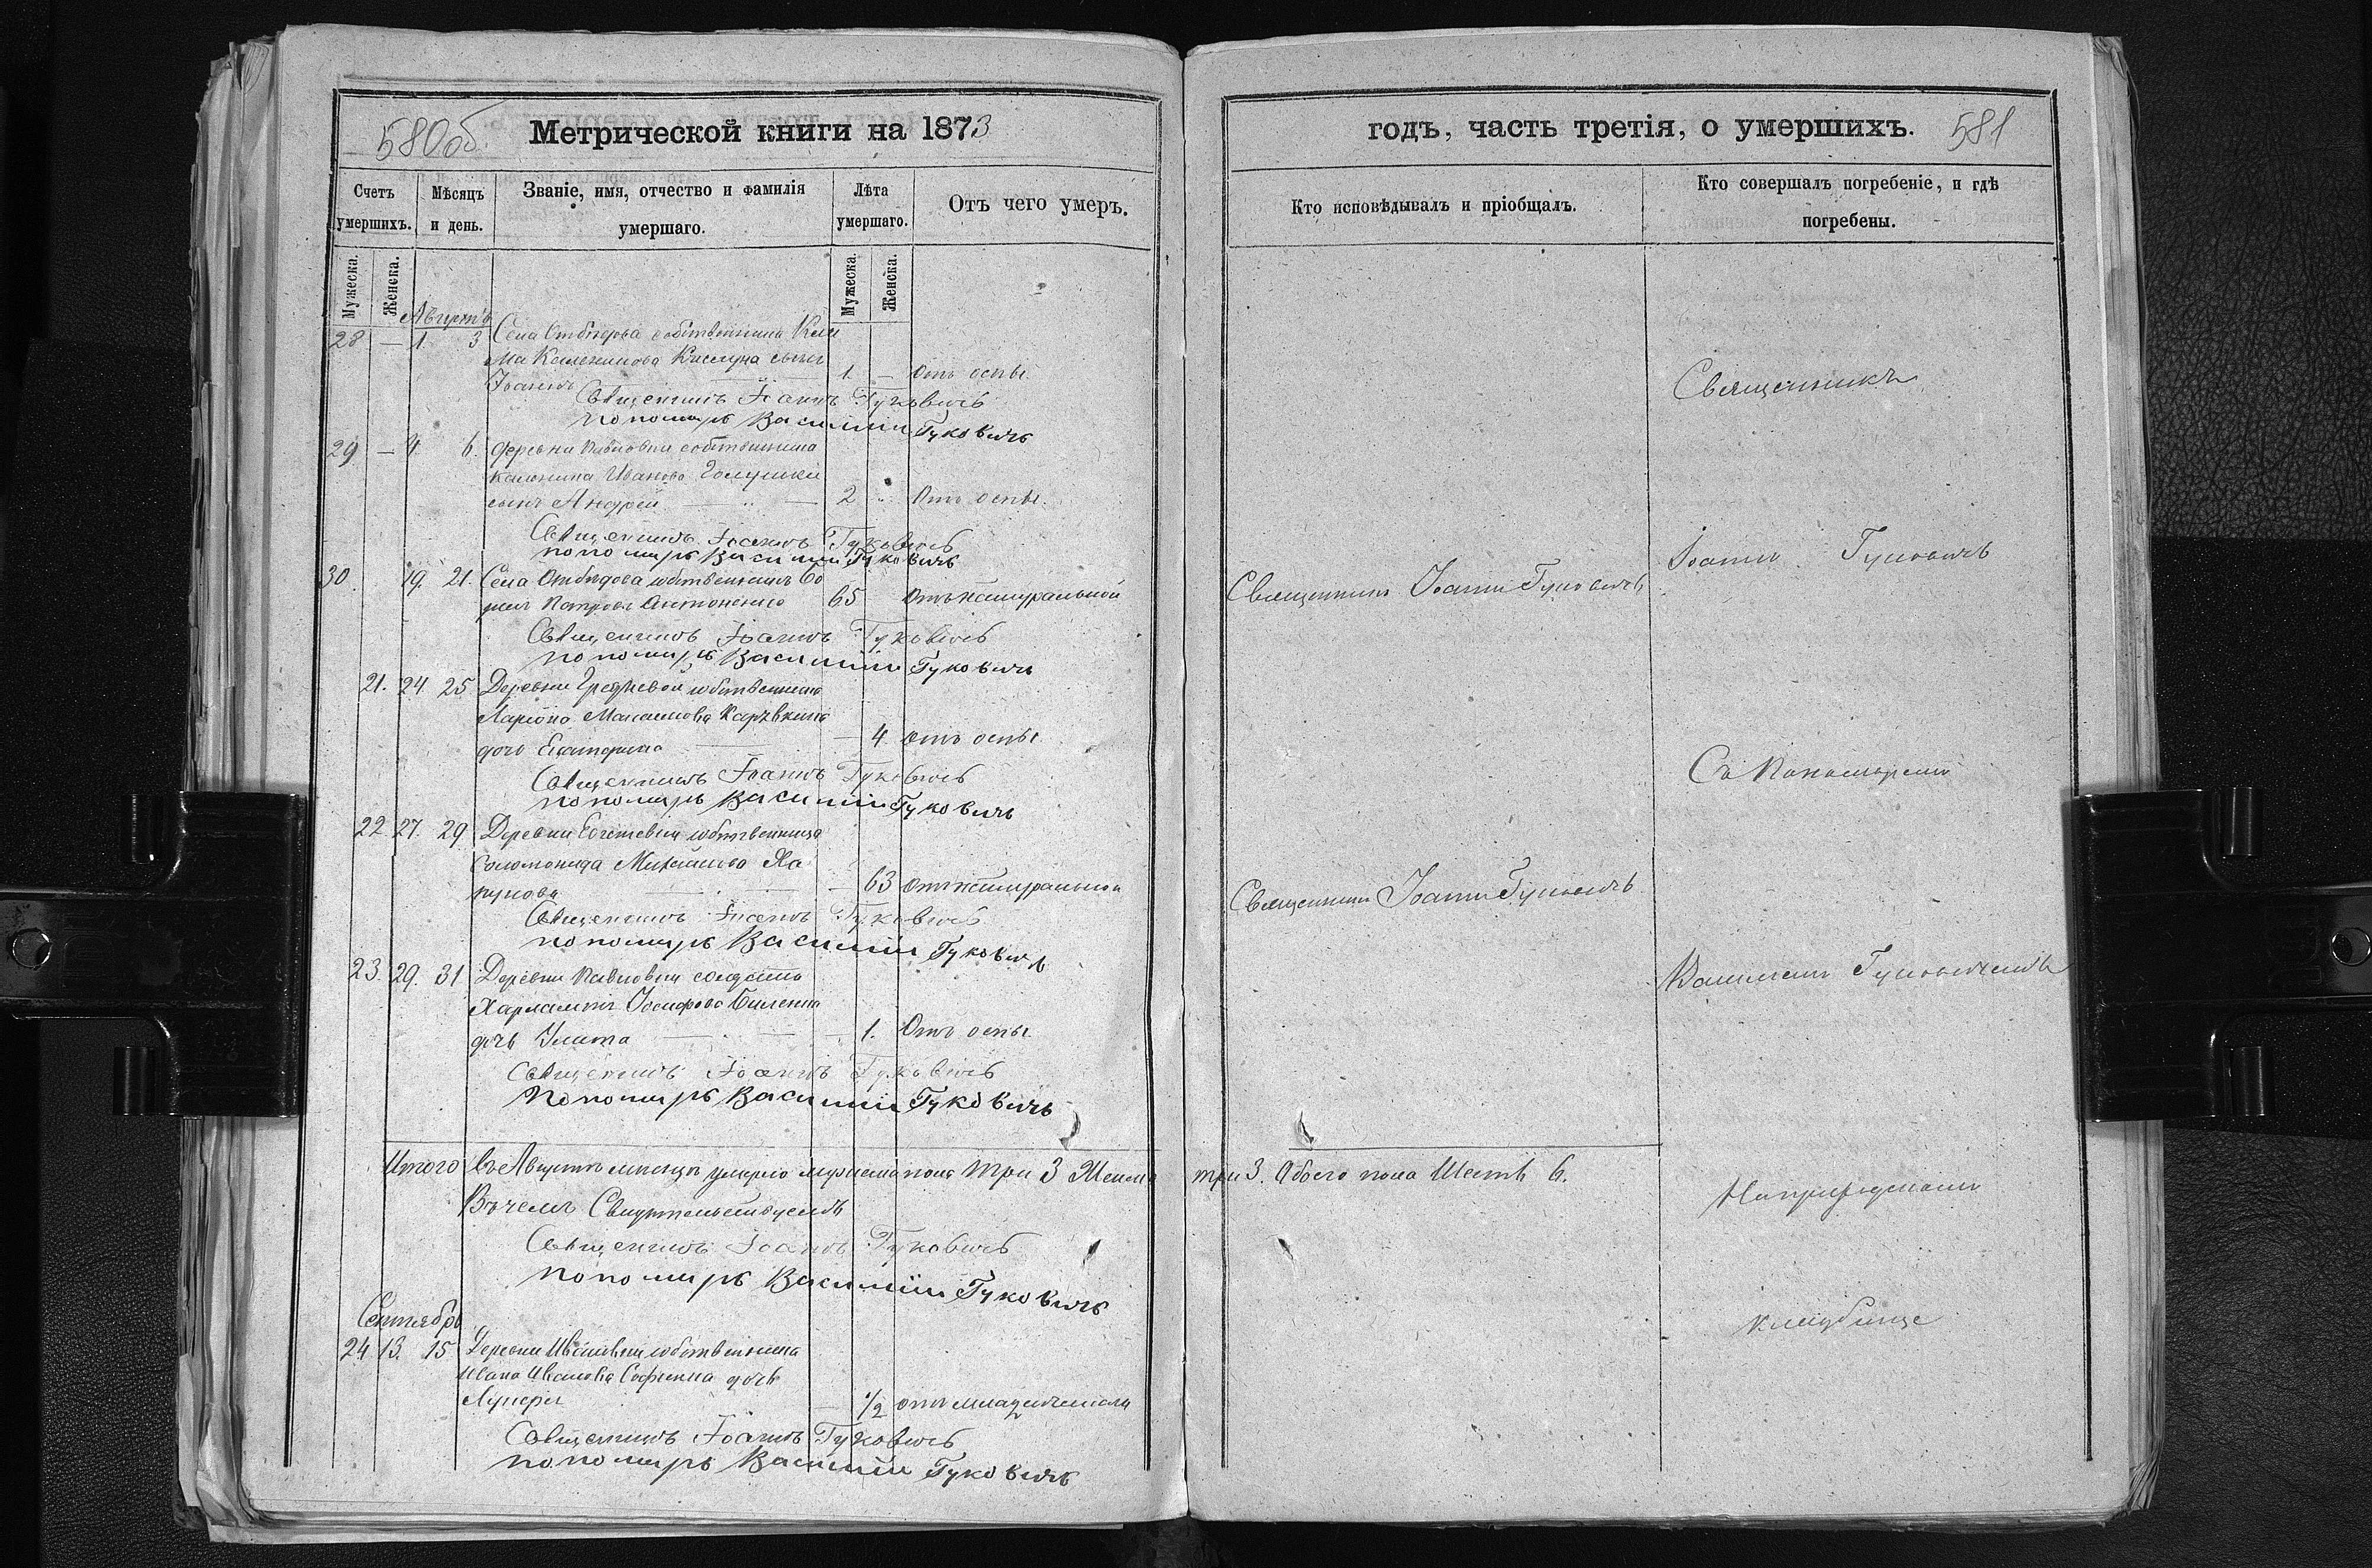 580об.
Метрической книги на 1873
Счетъ умершихъ.
Мѣсяцъ и день.
Званіе, имя, отчество и фамилія умершаго.
Лѣта умершаго.
Отъ чего умеръ.
Мужеска.
Женска.
Мужеска.
Женска.
Августъ
28 — 1. 3 Села собственника Кли
ма сынъ
Іоаннъ 1. — Отъ оспы
Священникъ Іоаннъ Гуковичъ
пономарь Василій Гуковичъ
29 — 4 6. Деревни Павловки собственника
Иванова сынъ Андрей 2 „ Отъ оспы.
Священникъ Іоаннъ Гуковичъ
пономарь Василій Гуковичъ
30. 19. 21. Села собственникъ Бо
рисъ Петровъ Антоненко 65 Отъ натуральной
Священникъ Іоаннъ Гуковичъ
пономарь Василій Гуковичъ
21. 24. 25 Деревни собственника
Ларіона Максимова
дочь Екатерина — 4 отъ оспы
Священникъ Іоаннъ Гуковичъ
пономарь Василій Гуковичъ
22. 27. 29 Деревни собственница
Соломонида Михайлова — 63 отъ натуральной
Священникъ Іоаннъ Гуковичъ
пономарь Василій Гуковичъ
23. 29. 31 Деревни Павловки солдата
Іосифова
дочь Улита — 1. Отъ оспы.
Священникъ Іоаннъ Гуковичъ
Пономарь Василій Гуковичъ
Итого въ Августѣ мѣсяцѣ умерло мужеска пола три 3 Женска три 3. Обоего пола Шесть 6.
Въ чемъ Свидѣтельствуемъ
Священникъ Іоаннъ Гуковичъ
пономарь Василій Гуковичъ
Сентябрь
24 13. 15 Деревни Ивановки собственника
Ивана Иванова дочь
— 1/2 отъ младенческой
Священникъ Іоаннъ Гуковичъ
пономарь Василій Гуковичъ
годъ, часть третія, о умершихъ.
581
Кто исповѣдывалъ и пріобщалъ.
Кто совершалъ погребеніе, и гдѣ
погребены.
Священникъ Іоаннъ Гуковичъ
Священникъ Іоаннъ Гуковичъ
Священникъ
Іоаннъ Гуковичъ
Съ Пономаремъ
Василіемъ Гуковичемъ
На приходскомъ
кладбищѣ